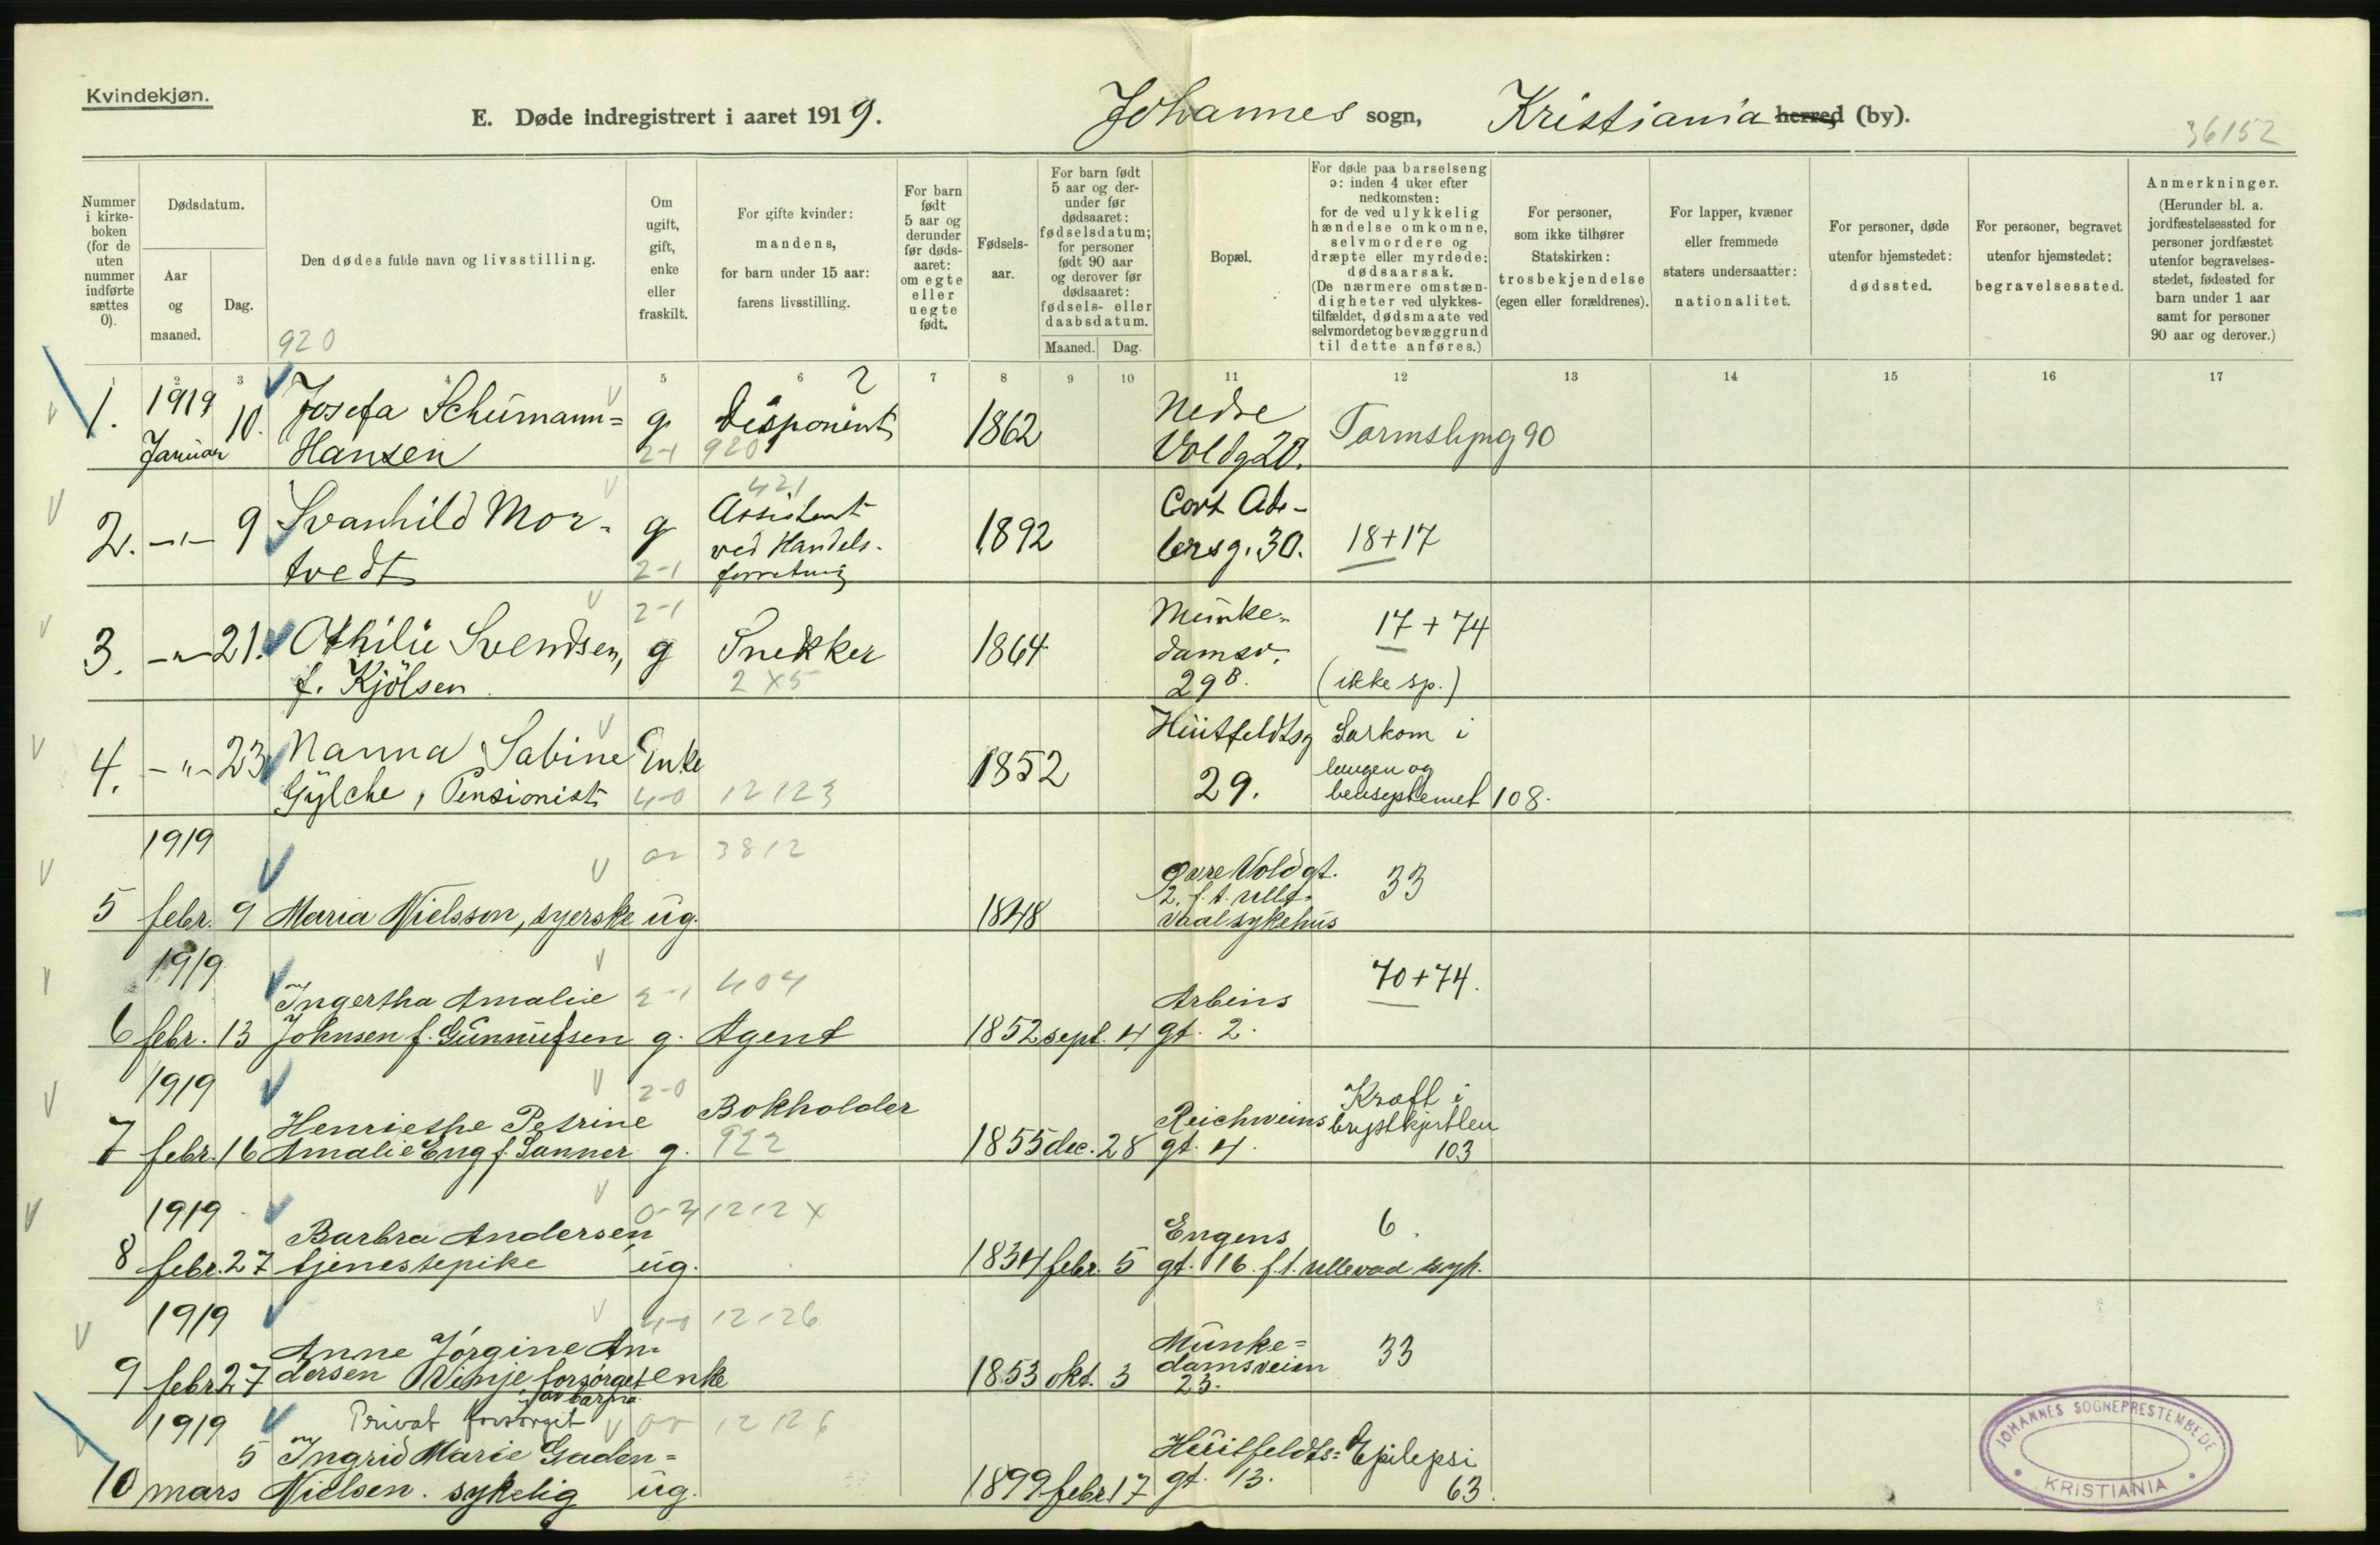 Kvindekjøn.
E. Døde indregistrert i aaret 1919.
Johannes sogn, Kristiania herred (by).
36152
Nummer i kirkeboken (for de uten nummer indførte sættes 0).
Dødsdatum.
Aar og maaned.
Dag.
Den dødes fulde navn og livsstilling.
920
Om ugift, gift, enke eller fraskilt.
For gifte kvinder: mandens, for barn under 15 aar: farens livsstilling.
For barn født 5 aar og derunder før dødsaaret: om egte eller uegte født.
Fødselsaar.
For barn født 5 aar og derunder før dødsaaret: fødselsdatum; for personer født 90 aar og derover før dødsaaret: fødsels- eller daabsdatum.
Maaned. Dag.
Bopæl.
For døde paa barselseng ɔ: inden 4 uker efter nedkomsten: for de ved ulykkelig hændelse omkomne, selvmordere og dræpte eller myrdede: dødsaarsak. (De nærmere omstændigheter ved ulykkestilfældet, dødsmaate ved selvmordet og bevæggrund til dette anføres.)
For personer, som ikke tilhører Statskirken: trosbekjendelse (egen eller forældrenes).
For lapper, kvæner eller fremmede staters undersaatter: nationalitet.
For personer, døde utenfor hjemstedet: dødssted.
For personer, begravet utenfor hjemstedet: begravelsessted.
Anmerkninger. (Herunder bl. a. jordfæstelsessted for personer jordfæstet utenfor begravelsesstedet, fødested for barn under 1 aar samt for personer 90 aar og derover.)
1 2 3 4 5 6 7 8 9 10 11 12 13 14 15 16 17
1. 1919 Januar 10. Josefa Schumann=
Hansen g. 2-1 Disponent 920 1862 Nedre
Voldg 20. Tarmslyng 90
2. -"- 9 Svanhild Mor-
tvedt g 2-1 421 Assistent
ved Handels-
forretning 1892 Cort Ade-
lersg. 30. 18+17
3. -"- 21. Othilie Svendsen,
f. Kjölsen 2-1 g Snekker 2X5 1864 Munke-
damsv.
29B. 17+74
(ikke sp.)
4. -"- 23 Nanna Sabine
Gylche, Pensionist Enke 4-0 12123 1852 Huitfeldtsg
29. Sarkom i
lungen og
bensystemet 108.
1919 3812
5 febr. 9 Maria Nielsson, syerske ug. 1848 Øvre Voldgt.
2. f. t. Ulle-
vaal sykehus 33
1919
6 febr. 13 Ingertha Amalie
Johnsen f. Gunnufsen 2-1 g. 404 Agent 1852 sept. 4 Arbins
gt. 2. 70+74.
1919
7 febr. 16 Henriethe Petrine
Amalie Eng f. Sanner 2-0 g. Bokholder 922 1855 dec. 28 Reichweins
gt. 4. Kræft i
brystkjertlen
103
1919
8 febr. 27 Barbra Andersen
tjenestepike ug. 1212X 1834 febr. 5 Engens
gt. 16 f.t. Ullevaal syk. 6.
1919
9 febr 27 Anne Jörgine An-
dersen Vinje forsørget
av barna enke 4-0 12126 1853 okt. 3 Munke=
damsveien
23. 33
1919 Privat forsørget 12126
10 mars 5 Ingrid Marie Gaden=
Nielsen. sykelig ug. 1899 febr. 17 Huitfeldts=
gt. 13. Epilepsi
63.
JOHANNES SOGNEPRESTEMBEDE
KRISTIANIA